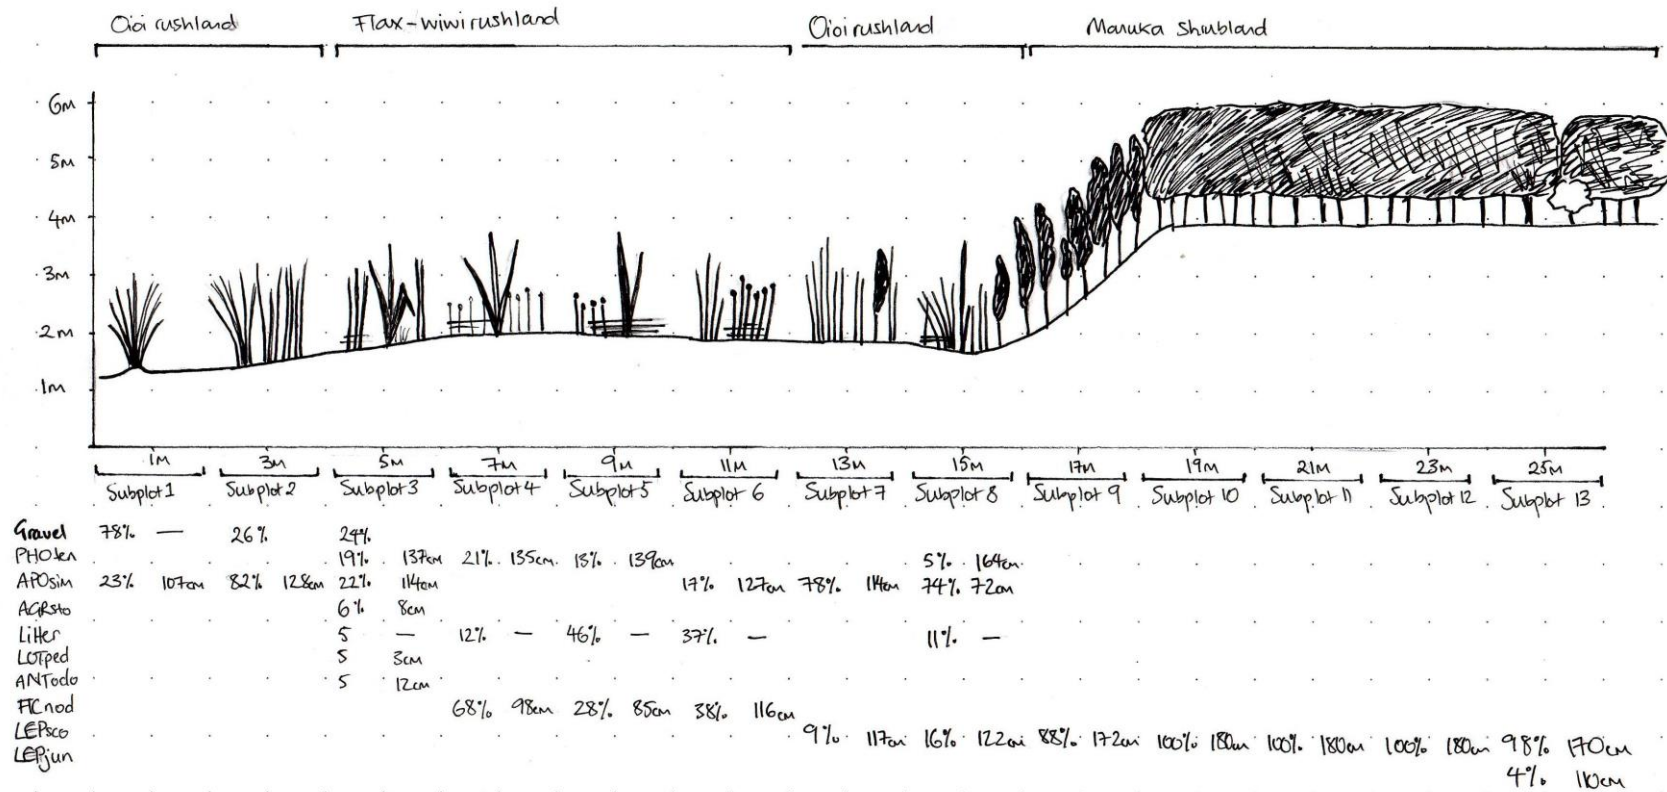 Oioi rushland Flax-wiwi rushland Oioi rushland Manuka Shrubland
6m
5m
4m
3m
2m
1m
1m 3m 5m 7m 9m 11m 13m 15m 17m 19m 21m 23m 25m
Subplot 1 Subplot 2 Subplot 3 Subplot 4 Subplot 5 Subplot 6 Subplot 7 Subplot 8 Subplot 9 Subplot 10 Subplot 11 Subplot 12 Subplot 13
Gravel 78% — 26% 24%
PHOten 19% 137cm 21% 135cm 13% 139cm 5% 164cm
APOsim 23% 107cm 82% 128cm 22% 114cm 17% 127cm 78% 114cm 74% 72cm
AGRsto 6% 8cm
Litter 5 — 12% — 46% — 37% — 11% —
LOTped 5 3cm
ANTodo 5 12cm
FICnod 68% 98cm 28% 85cm 38% 116cm
LEPsco 9% 117cm 16% 122cm 88% 172cm 100% 180cm 100% 180cm 100% 180cm 98% 170cm
LEPjun 4% 110cm